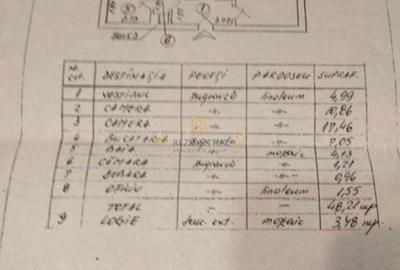 NR. CRT. DESTINAȚIA PEREȚI PARDOSELI SUPRAF.
1 VESTIBUL zugraveli linoleum 4,99
2 CAMERA -"- -"- 10,86
3 CAMERA -"- -"- 17,46
4 BUCATARIE -"- 7,05
5 BAIA -"- mozaic 4,13
6 CĂMARA zugraveli -"- 1,21
7 DEBARA -"- -"- 0,96
8 OFICIU -"- linoleum 1,55
TOTAL - 48,21 mp
9 LOGIE ext. mozaic 3,48 mp